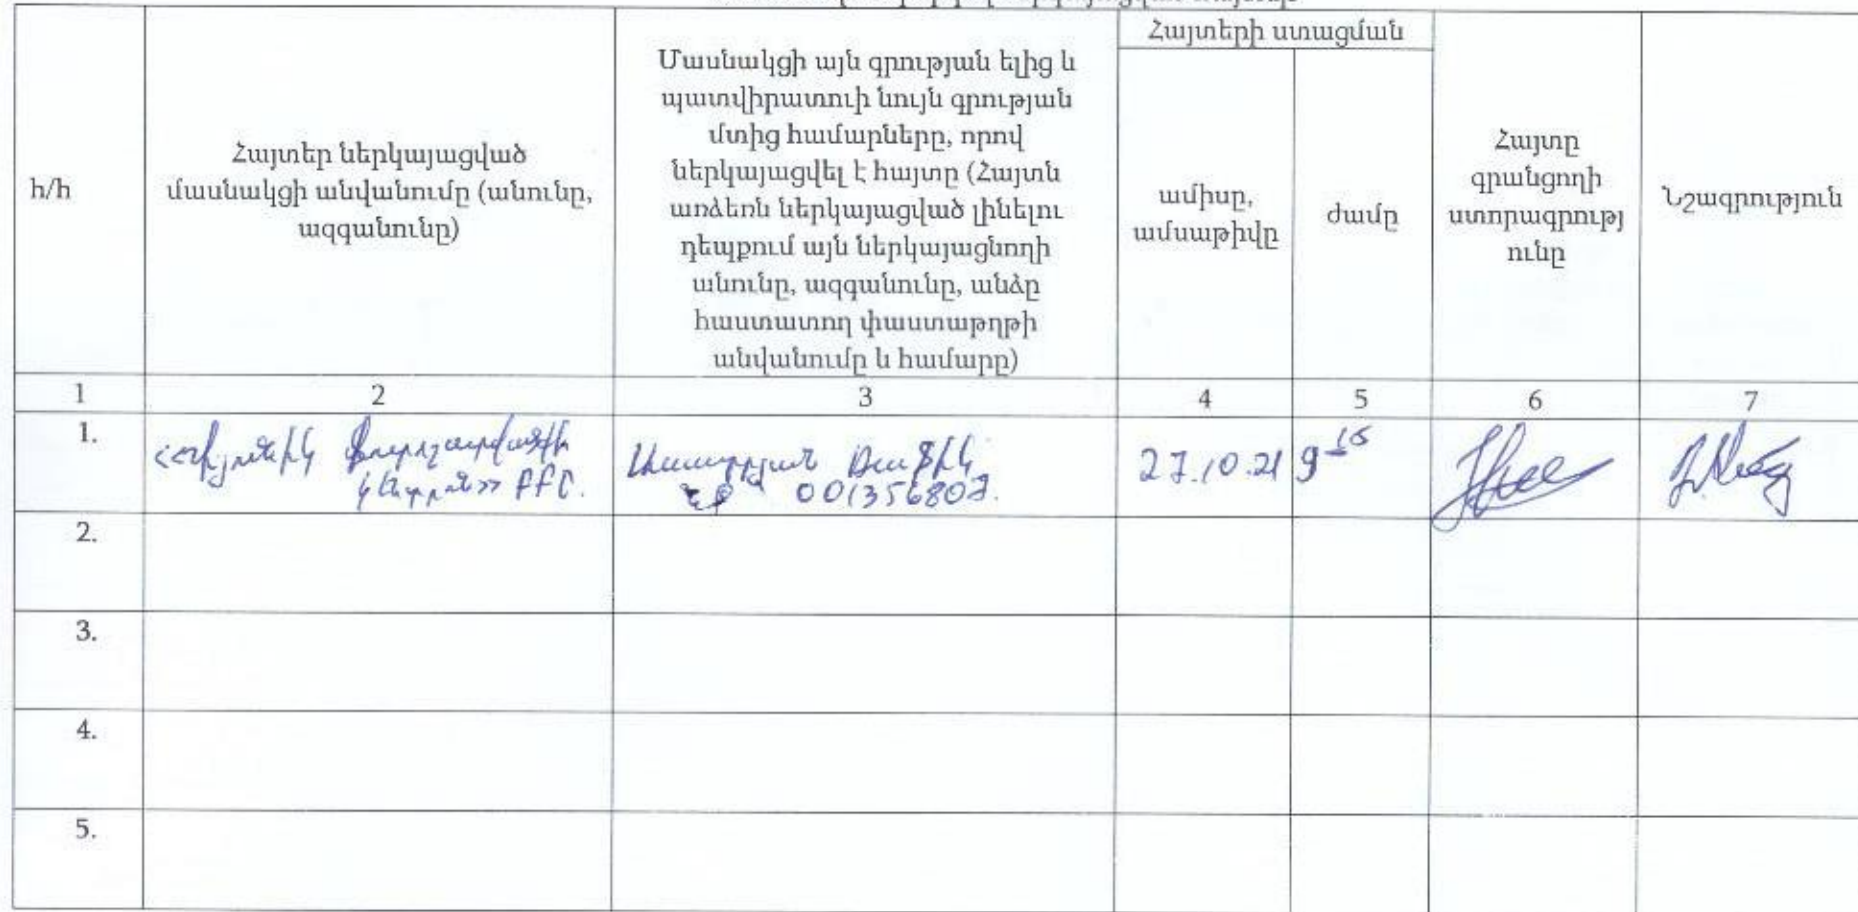 Հայտերի ստացման
h/h
Հայտեր ներկայացված
մասնակցի անվանումը (անունը,
ազգանունը)
Մասնակցի այն գրության ելից և
պատվիրատուի նույն գրության
մտից համարները, որով
ներկայացվել է հայտը (Հայտն
առձեռն ներկայացված լինելու
դեպքում այն ներկայացնողի
անունը, ազգանունը, անձը
հաստատող փաստաթղթի
անվանումը և համարը)
ամիսը,
ամսաթիվը
ժամը
Հայտը
գրանցողի
ստորագրությ
ունը
Նշագրություն
1 2 3 4 5 6 7
1.
ՓԲԸ.
001356807.
27.10.21 9 15
2.
3.
4.
5.